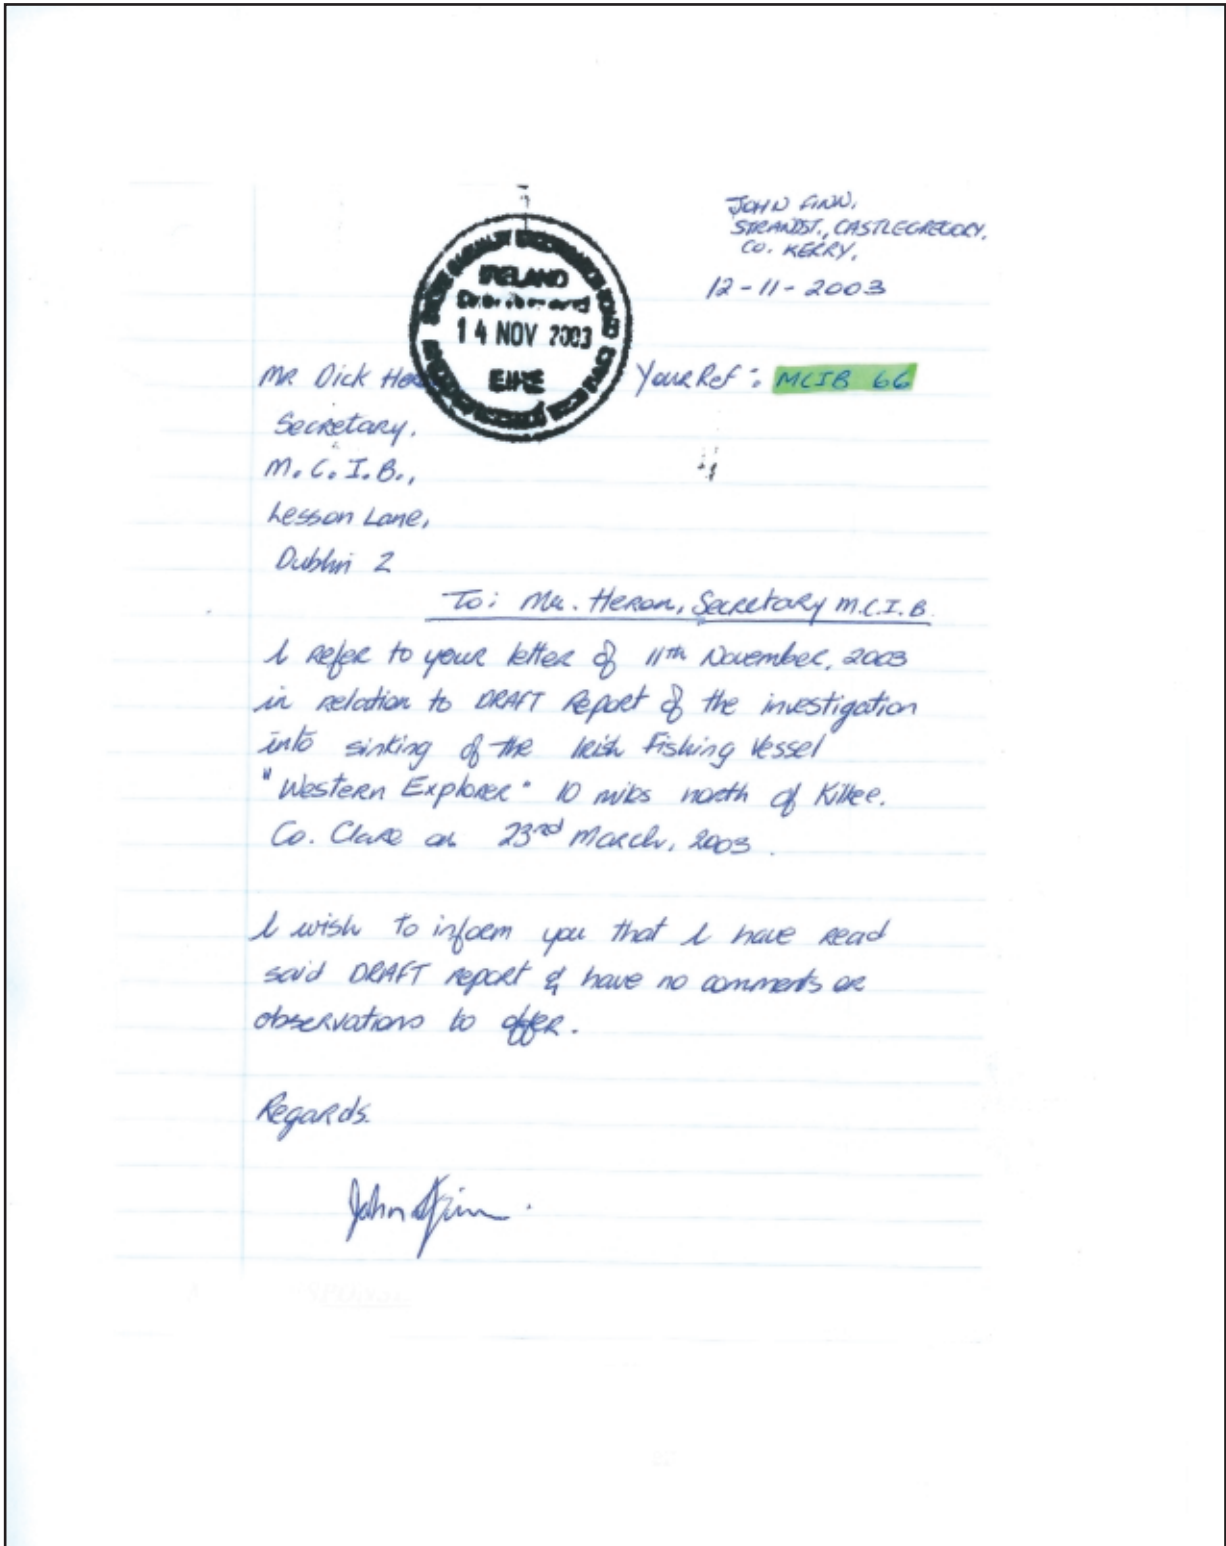 JOHN FINN,
STRAND ST., CASTLEGREGORY,
CO. KERRY,
12-11-2003
IRELAND
14 NOV 2003
EIRE
Mr Dick
Your Ref: MCIB 66
Secretary,
M.C.I.B.,
Lesson Lane,
Dublin 2
To: Mr. Heron, Secretary M.C.I.B.
I refer to your letter of 11th November, 2003
in relation to DRAFT Report of the investigation
into sinking of the Irish Fishing Vessel
"Western Explorer" 10 miles north of Kilkee.
Co. Clare on 23rd March, 2003.
I wish to inform you that I have read
said DRAFT report & have no comments or
observations to offer.
Regards.
John Finn.